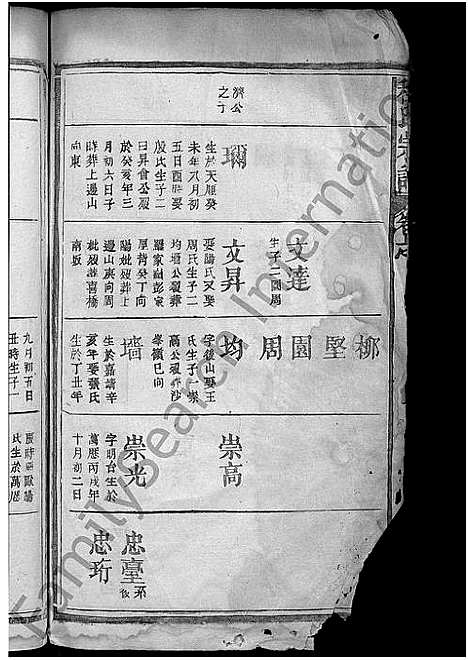 濟公
之丁
瓓
生於天順癸
未年八月初
五日酉時娶
殷氏生子二
曰昇食公歿
於癸亥年三
月初六日子
時葬上邊山
向東
文達
生子二園周
文昇
娶陽氏又娶
周氏生子二
均墻公歿葬
羅家
厚背癸丁向
陽妣歿葬上
邊山庚向周
妣歿葬喜橋
南坂
柳
堅
園
周
均
字後山娶王
氏生子一崇
高公歿葬沙
峯嶺巳向
墻
生於嘉靖辛
亥年娶張氏
生於丁丑年
九月初五日
丑時生子一
崇高
崇光
字明台生於
萬曆丙戌年
十月初二日
辰時娶歐陽
氏生於萬歷
忠臺
系後
忠珩
FamilySearch International